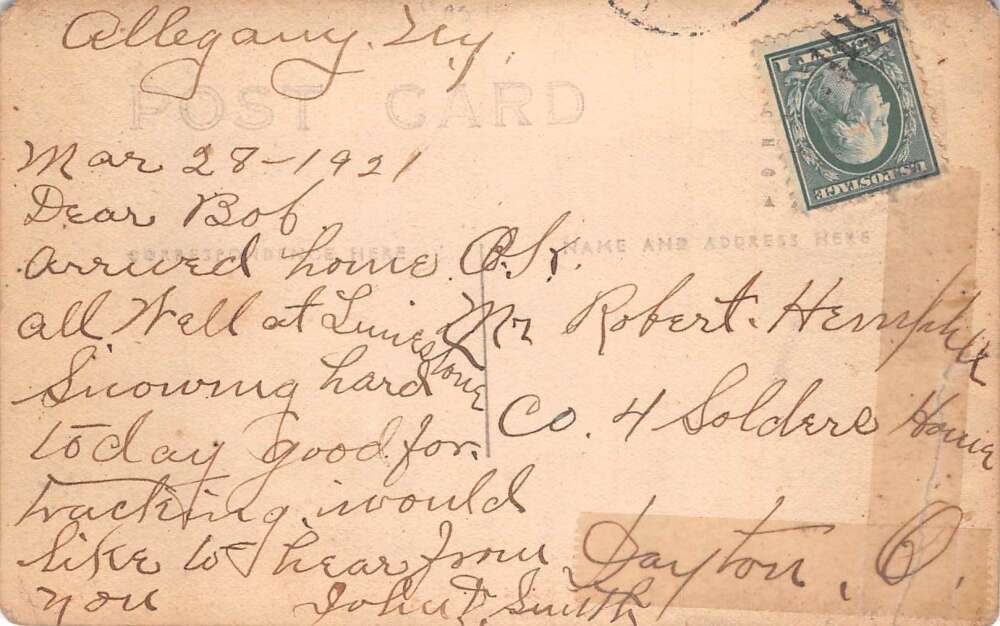 Allegany. N.y.
POST CARD
Mar 28-1921
Dear Bob
CORRESPONDENCE HERE
NAME AND ADDRESS HERE
arrived home O.K.
all Well at Limestone
Snowing hard
today good for.
tracking. would
like to hear from
you John F. Smith
Mr Robert. Hemphill
Co. 4 Solders Home
Dayton, O.
U.S. POSTAGE